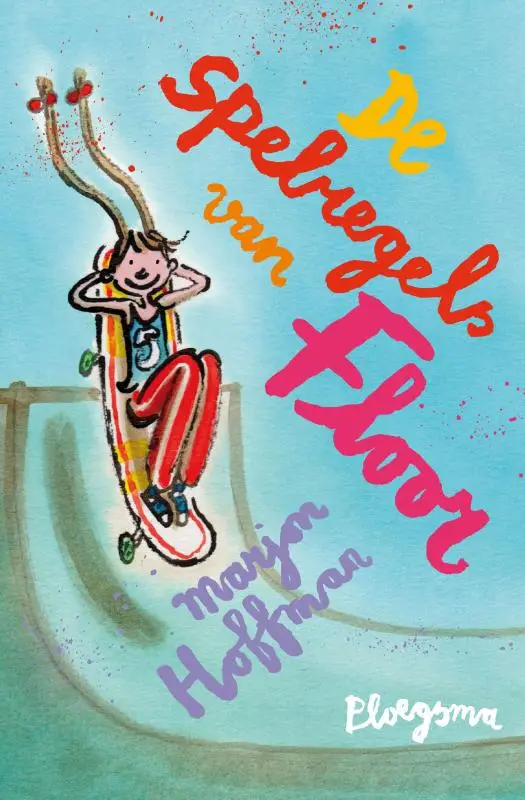 De
Spelregels
van
Floor
5
Marjon
Hoffman
Ploegsma